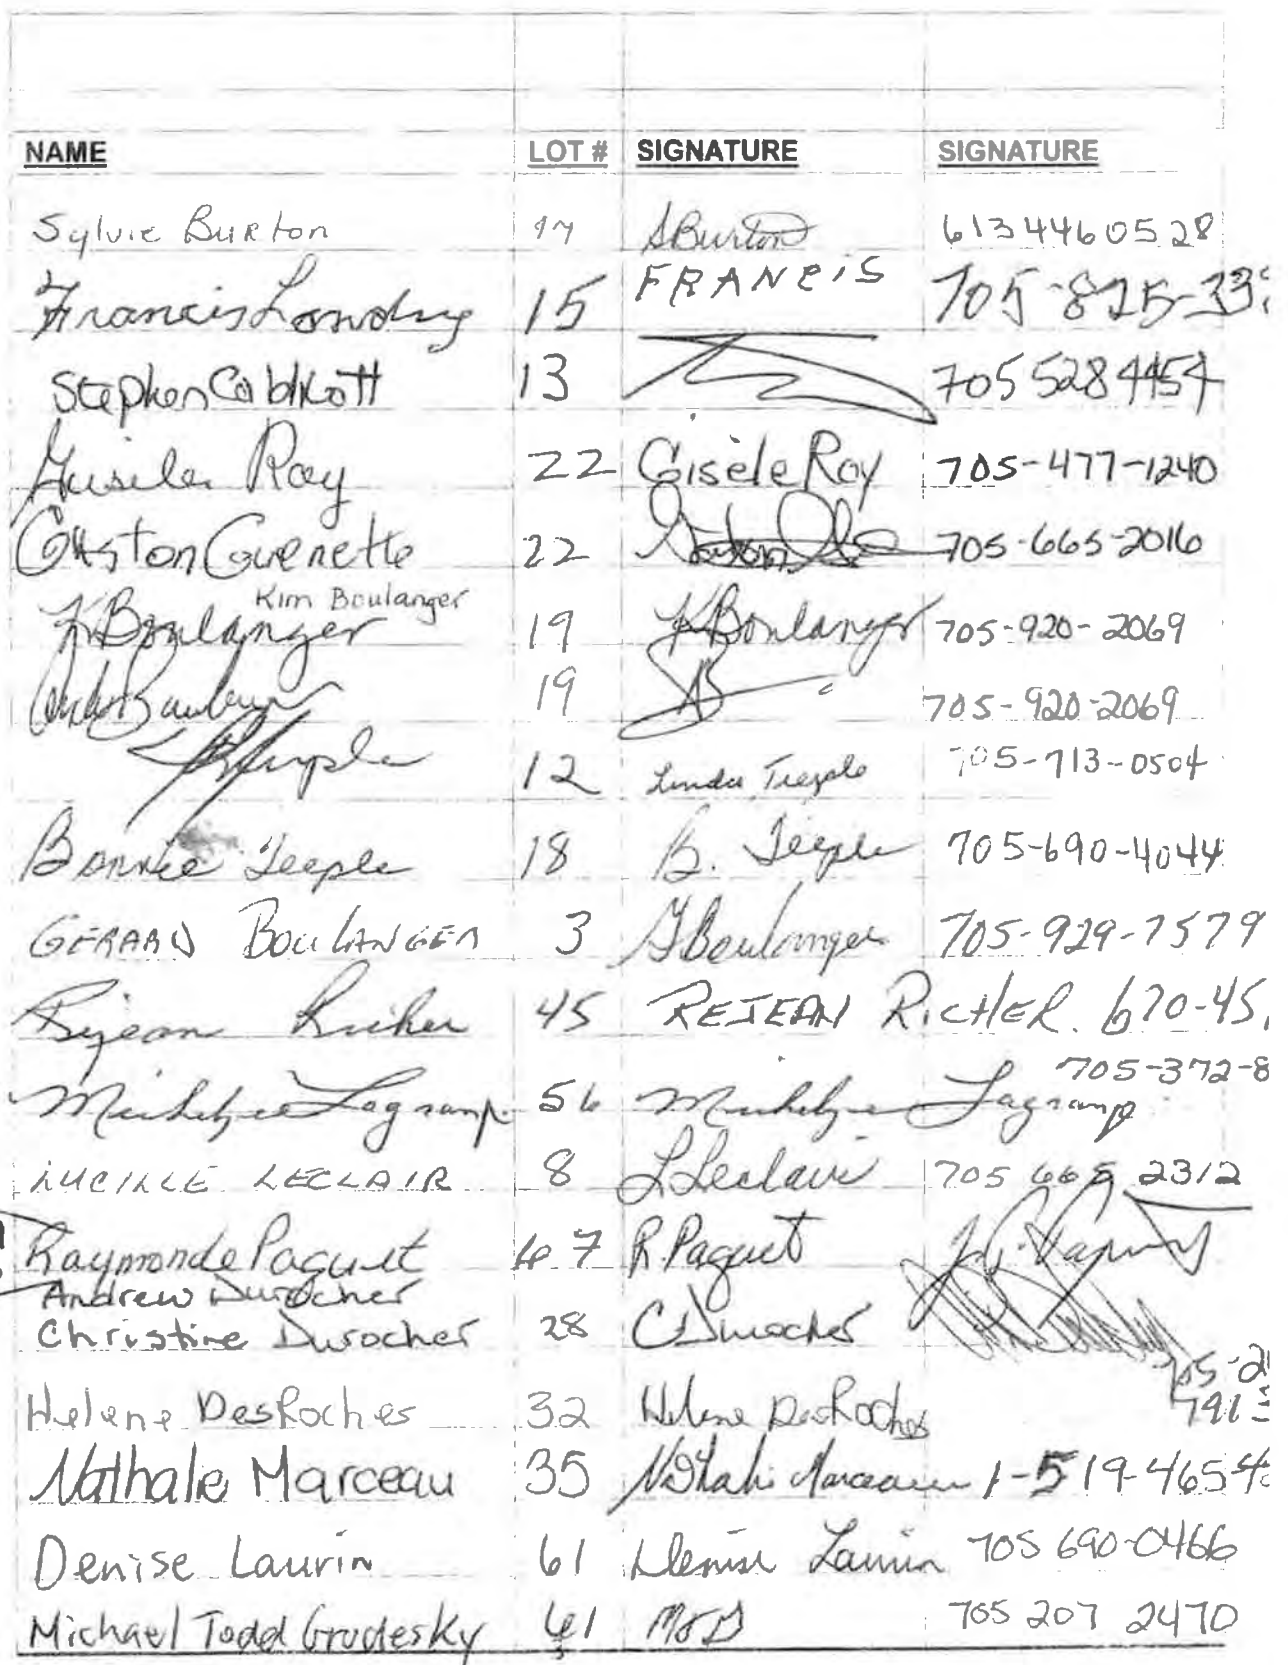 NAME LOT # SIGNATURE SIGNATURE
Sylvie Burton 17 SBurton 6134460528
Francis Landry 15 FRANCIS 705-825-33
Stephen Caldicott 13 705 528 4454
Gisele Roy 22 Gisèle Roy 705-477-1240
Gaston Guenette 22 Gaston 705-665-2016
Kim Boulanger
K Boulanger 19 K Boulanger 705-920-2069
Boulanger 19 AB 705-920-2069
Teeple 12 Linda Teeple 705-713-0504
Bonnie Teeple 18 B. Teeple 705-690-4044
GERARD BOULANGER 3 G Boulanger 705-929-7579
Rejean Richer 45 REJEAN RICHER. 670-45
705-372-8
56
LUCILLE LECLAIR 8 L Leclair 705 665 2312
Raymonde Paquet 67 R Paquet
Andrew Durocher
Christine Durocher 28 C Durocher
705-2
Helene DesRoches 32 Helene DesRoches 791
Nathalie Marceau 35 Nathalie Marceau 1-519-465-4
Denise Laurin 61 Denise Laurin 705 690-0466
Michael Todd Grudesky 61 705 207 2470